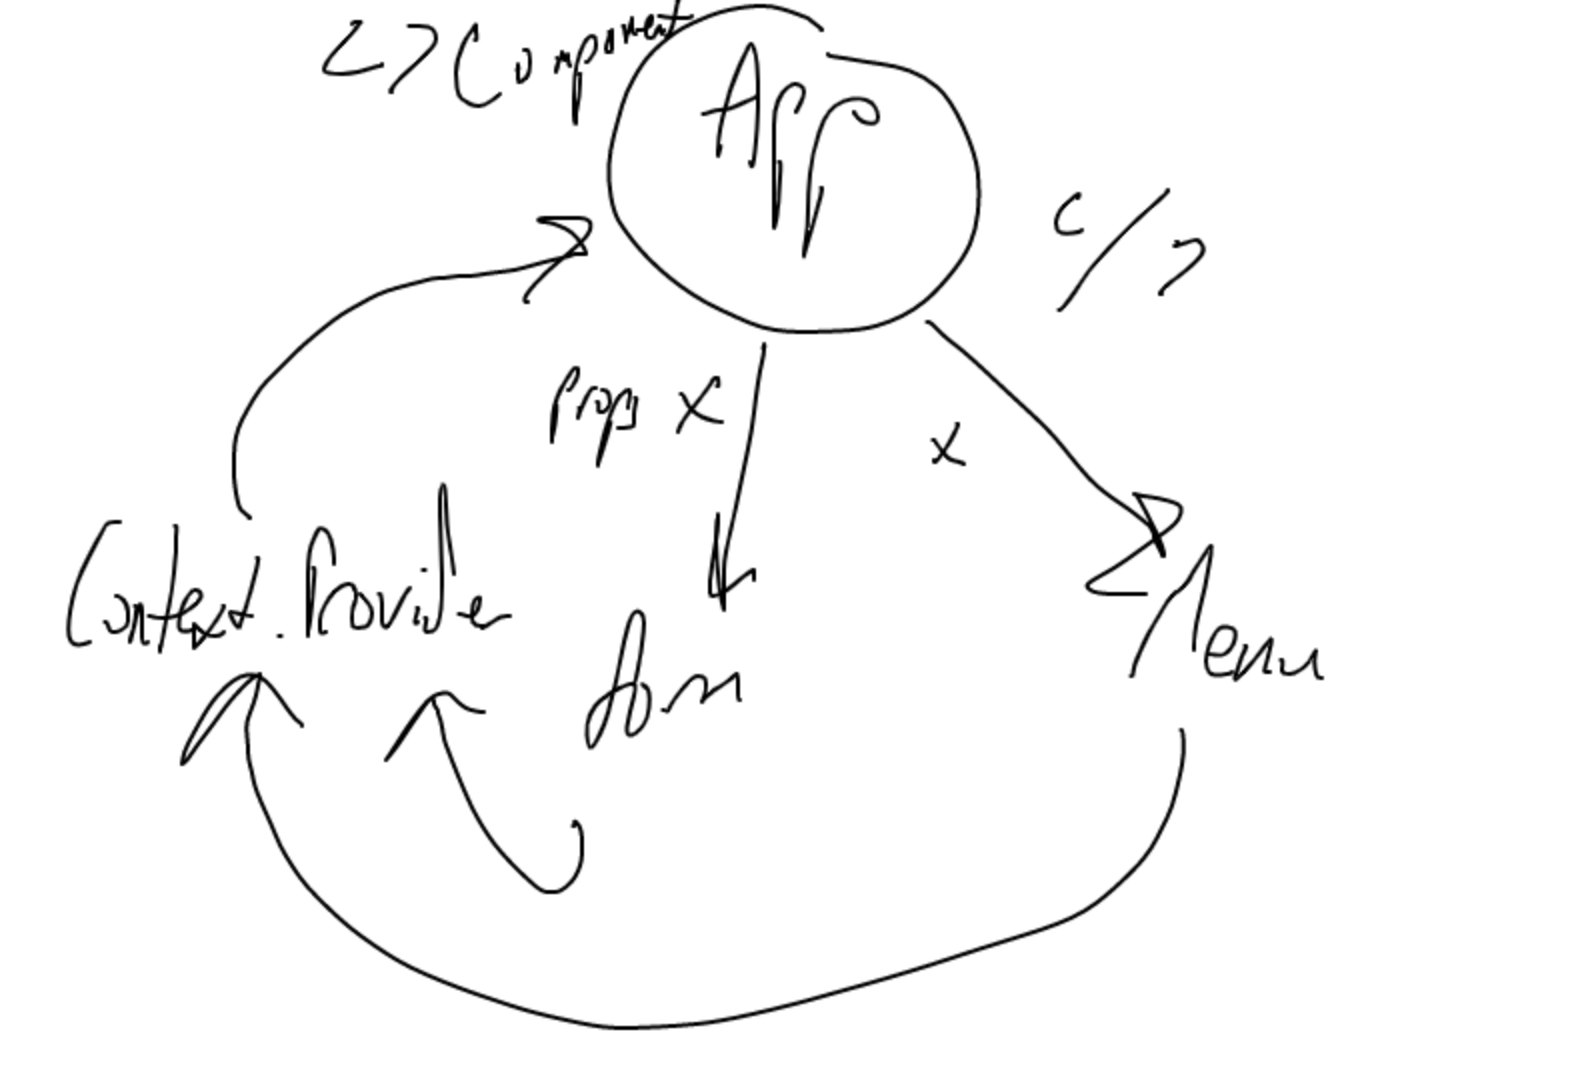 <> Component
App
</>
Props x
x
Context.Provider
form
Menu